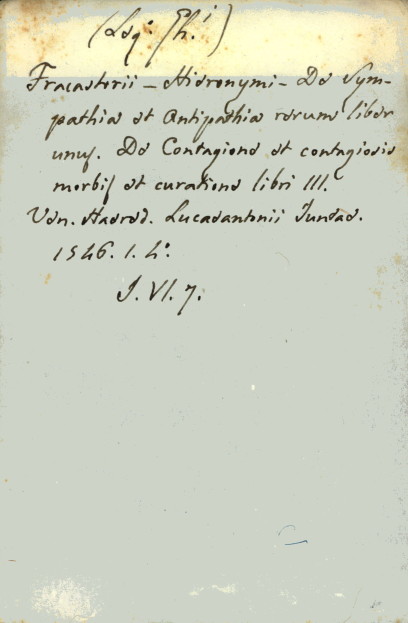 (Leg. Ph.i)
Fracastorii – Hieronymi – De Sym-
pathia et Antipathia rerum liber
unus. De Contagione et contagiosis
morbis et curatione libri III.
Ven. Haered. Lucaeantonii Juntae.
1546. 1. 4°.
J. VI. 7.